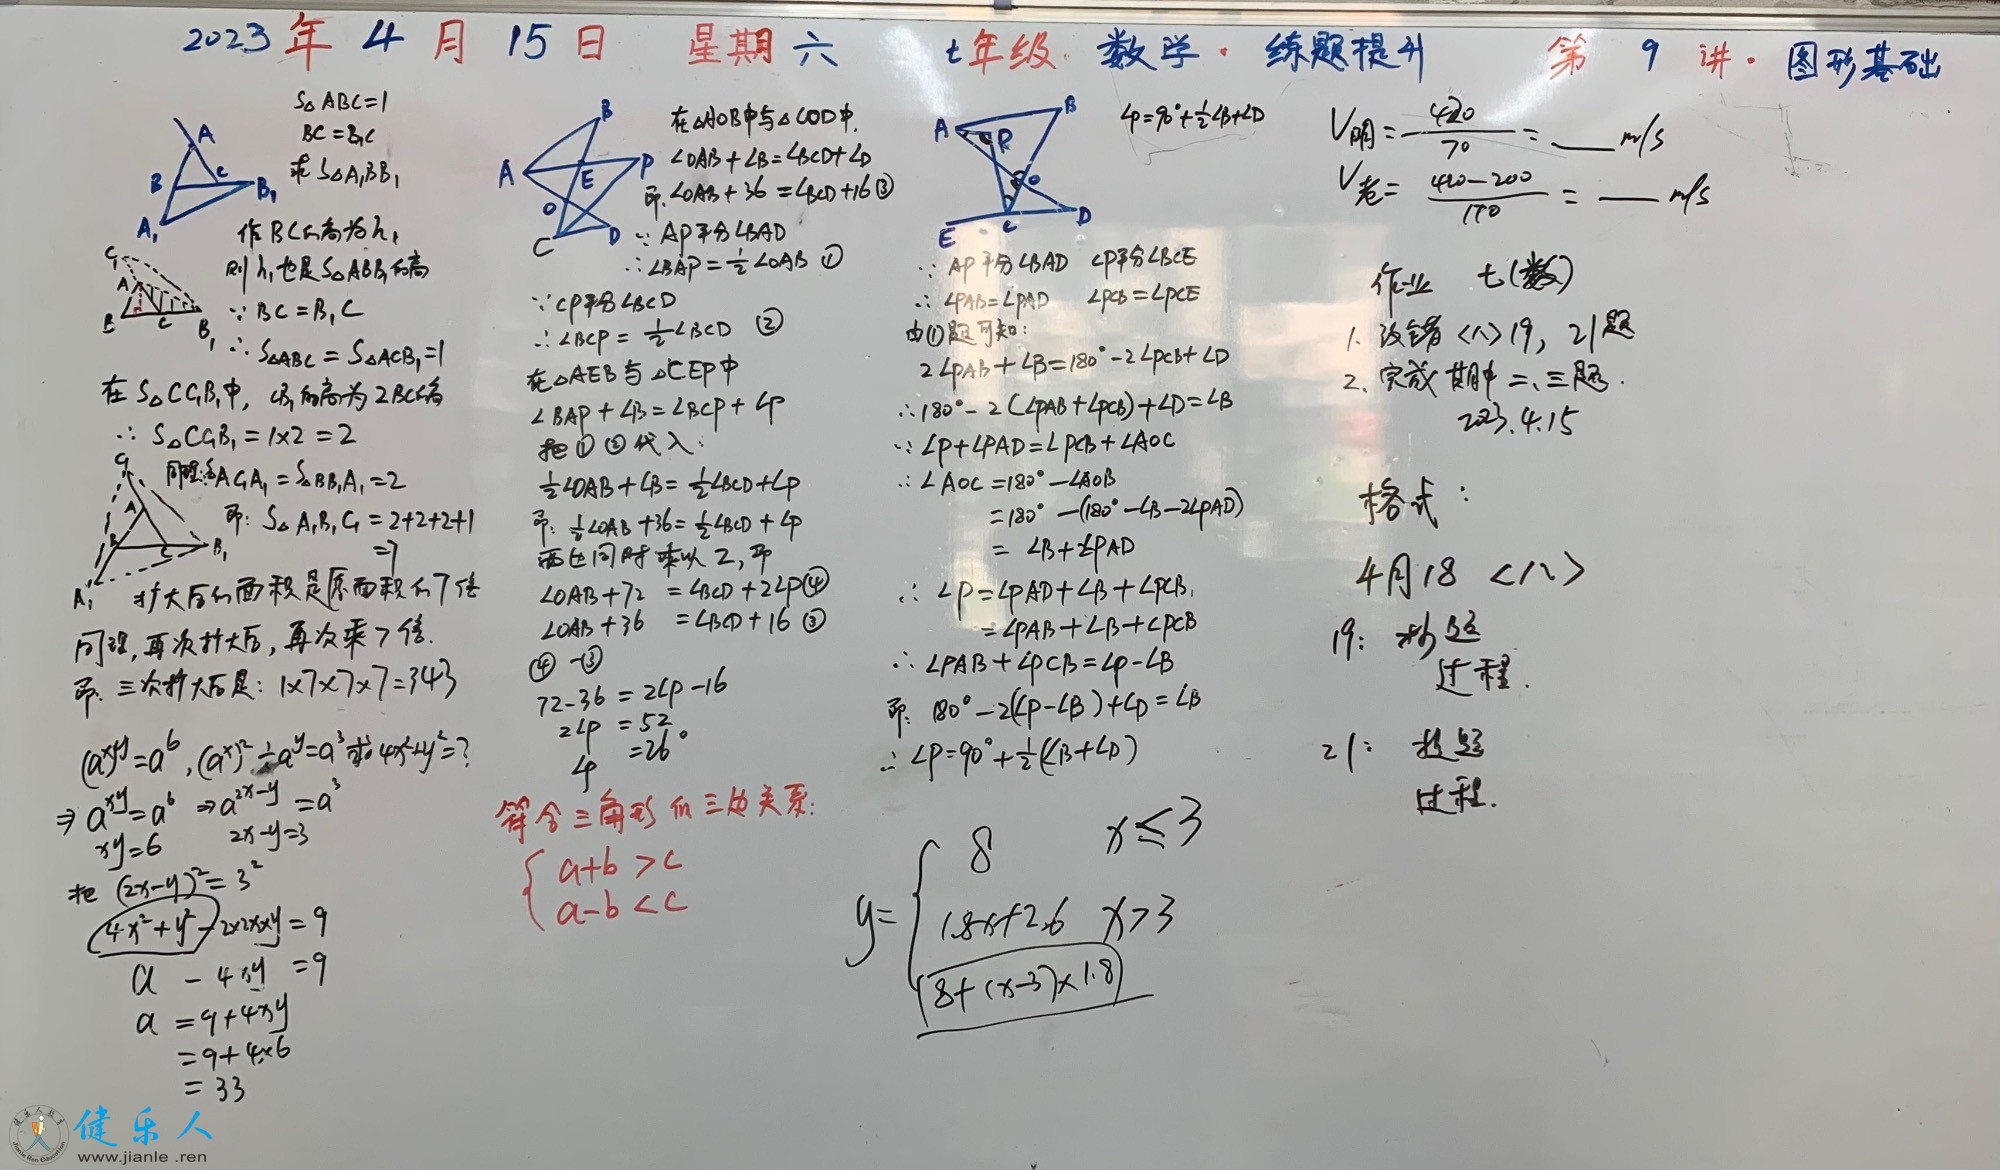 2023年4月15日 星期六 七年级·数学·练题提升 第9讲·图形基础
S△ABC=1
BC=B₁C
求S△A₁BB₁
A
B
C
B₁
A₁
作BC的高为h₁
则h₁也是S△ABB₁的高
∵BC=B₁C
∴S△ABC=S△ACB₁=1
C₁
A
B
C
B₁
在S△CC₁B₁中,CB₁的高为2BC的高
∴S△CC₁B₁=1×2=2
同理:S△AC₁A₁=S△BB₁A₁=2
即:S△A₁B₁C₁=2+2+2+1
=7
C₁
A
B
C
B₁
A₁
扩大后的面积是原面积的7倍
同理,再次扩大后,再次乘7倍.
即:三次扩大后是:1×7×7×7=343
(aˣ)ʸ=a⁶,(aˣ)²÷aʸ=a³求4x²+y²=?
⇒aˣʸ=a⁶ ⇒a²ˣ⁻ʸ=a³
xy=6 2x-y=3
把(2x-y)²=3²
4x²+y²-2×2x×y=9
a-4xy=9
a=9+4xy
=9+4×6
=33
B
A
P
E
O
C
D
在△AOB中与△COD中.
∠OAB+∠B=∠BCD+∠D
即:∠OAB+36=∠BCD+16③
∵AP平分∠BAD
∴∠BAP=½∠OAB①
∵CP平分∠BCD
∴∠BCP=½∠BCD②
在△AEB与△CEP中
∠BAP+∠B=∠BCP+∠P
把①②代入:
½∠OAB+∠B=½∠BCD+∠P
即:½∠OAB+36=½∠BCD+∠P
两边同时乘以2,即
∠OAB+72=∠BCD+2∠P④
∠OAB+36=∠BCD+16③
④-③
72-36=2∠P-16
2∠P=52
∠P=26°
符合三角形的三边关系:
a+b>c
a-b<c
A
B
P
O
E
C
D
∠P=90°+½∠B+∠D
∵AP平分∠BAD CP平分∠BCE
∴∠PAB=∠PAD ∠PCB=∠PCE
由①题可知:
2∠PAB+∠B=180°-2∠PCB+∠D
∴180°-2(∠PAB+∠PCB)+∠D=∠B
∵∠P+∠PAD=∠PCB+∠AOC
∴∠AOC=180°-∠AOB
=180°-(180°-∠B-2∠PAD)
=∠B+2∠PAD
∴∠P=∠PAD+∠B+∠PCB,
=∠PAB+∠B+∠PCB
∴∠PAB+∠PCB=∠P-∠B
即:180°-2(∠P-∠B)+∠D=∠B
∴∠P=90°+½(∠B+∠D)
y=
8 x≤3
1.8x+2.6 x>3
8+(x-3)×1.8
V明=420/70=___m/s
V老=(420-200)/110=___m/s
作业 七(数)
1.改错<八>19,21题
2.完成期中二、三题.
2023.4.15
格式:
4月18<八>
19:抄题
过程.
21:抄题
过程.
健乐人
www.jianle.ren